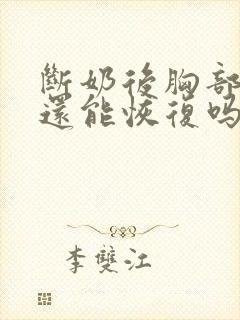 斷奶後胸部
還能恢復嗎
李雙江